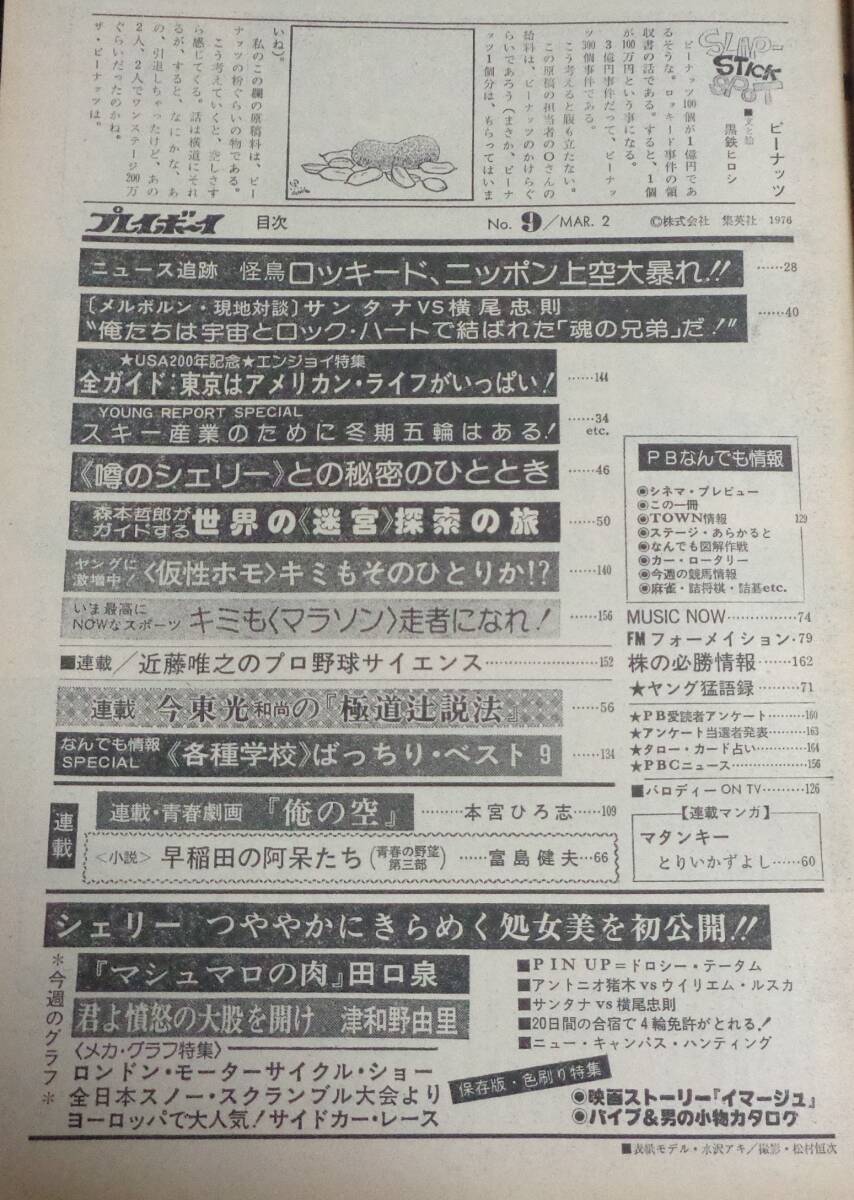 SLAP-
STICK
SPOT
ピーナッツ
■文と絵 黒鉄ヒロシ
ピーナッツ100個が1億円であ
るそうな。ロッキード事件の領
収書の話である。すると、1個
が100万円という事になる。
3億円事件だって、ピーナッ
ツ300個事件である。
こう考えると腹も立たない。
この原稿の担当者のOさんの
給料は、ピーナッツのかけらぐ
らいであろう（まさか、ピーナ
ッツ1個分は、もらってはいま
いね）。
私のこの欄の原稿料は、ピー
ナッツの粉ぐらいの物である。
こう考えていくと、空しさす
ら感じてくる。話は横道にそれ
るが、すると、なにかな、あ
の、引退しちゃったけど、あの
2人、2人でワンステージ200万
ぐらいだったのかね。
ザ・ピーナッツは。
プレイボーイ 目次 No. 9/MAR. 2 ©株式会社 集英社 1976
ニュース追跡 怪鳥ロッキード、ニッポン上空大暴れ!! ……28
〔メルボルン・現地対談〕サンタナVS横尾忠則
“俺たちは宇宙とロック・ハートで結ばれた「魂の兄弟」だ!” ……40
★USA200年記念★エンジョイ特集
全ガイド:東京はアメリカン・ライフがいっぱい! ……144
YOUNG REPORT SPECIAL
スキー産業のために冬期五輪はある! ……34 etc.
《噂のシェリー》との秘密のひととき ……46
森本哲郎がガイドする 世界の《迷宮》探索の旅 ……50
ヤングに激増中! 〈仮性ホモ〉キミもそのひとりか!? ……140
いま最高にNOWなスポーツ キミも〈マラソン〉走者になれ! ……156
■連載/近藤唯之のプロ野球サイエンス……152
連載 今東光和尚の『極道辻説法』 ……56
なんでも情報SPECIAL 《各種学校》ばっちり・ベスト9 ……134
PBなんでも情報
◉シネマ・プレビュー
◉この一冊
◉TOWN情報 129
◉ステージ・あらかると
◉なんでも図解作戦
◉カー・ロータリー
◉今週の競馬情報
◉麻雀・詰将棋・詰碁etc.
MUSIC NOW……74
FMフォーメイション・79
株の必勝情報……162
★ヤング猛語録……71
★PB愛読者アンケート……160
★アンケート当選者発表……163
★タロー・カード占い……164
★PBCニュース……156
■パロディーON TV……126
【連載マンガ】
マタンキー
とりいかずよし……60
連載
連載・青春劇画 『俺の空』 ……本宮ひろ志……109
〈小説〉早稲田の阿呆たち（青春の野望 第三部）……富島健夫…66
シェリー つややかにきらめく処女美を初公開!!
＊今週のグラフ＊
『マシュマロの肉』田口泉
君よ憤怒の大股を開け 津和野由里
〈メカ・グラフ特集〉
ロンドン・モーターサイクル・ショー
全日本スノー・スクランブル大会より
ヨーロッパで大人気!サイドカー・レース
■PIN UP＝ドロシー・テータム
■アントニオ猪木vsウイリエム・ルスカ
■サンタナvs横尾忠則
■20日間の合宿で4輪免許がとれる!
■ニュー・キャンパス・ハンティング
保存版・色刷り特集
◉映画ストーリー『イマージュ』
◉パイプ&男の小物カタログ
■表紙モデル・水沢アキ/撮影・松村恒次